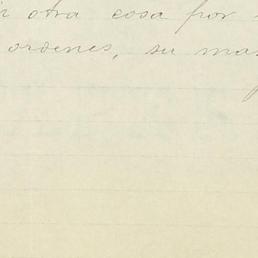 otra cosa por
ordenes, su mas